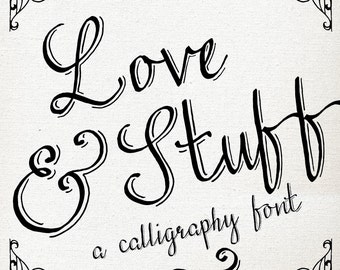 Love
& Stuff
a calligraphy font